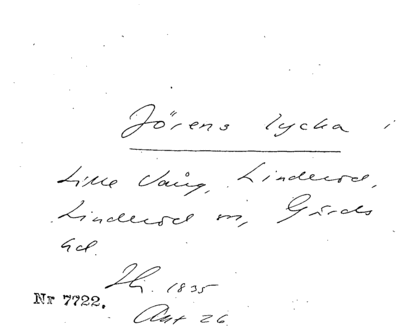 Jörens lycka i
Lilla Vång, Linderöd,
Linderöd sn, Gärds
hd.
Hg. 1835
Akt 26
Nr 7722.